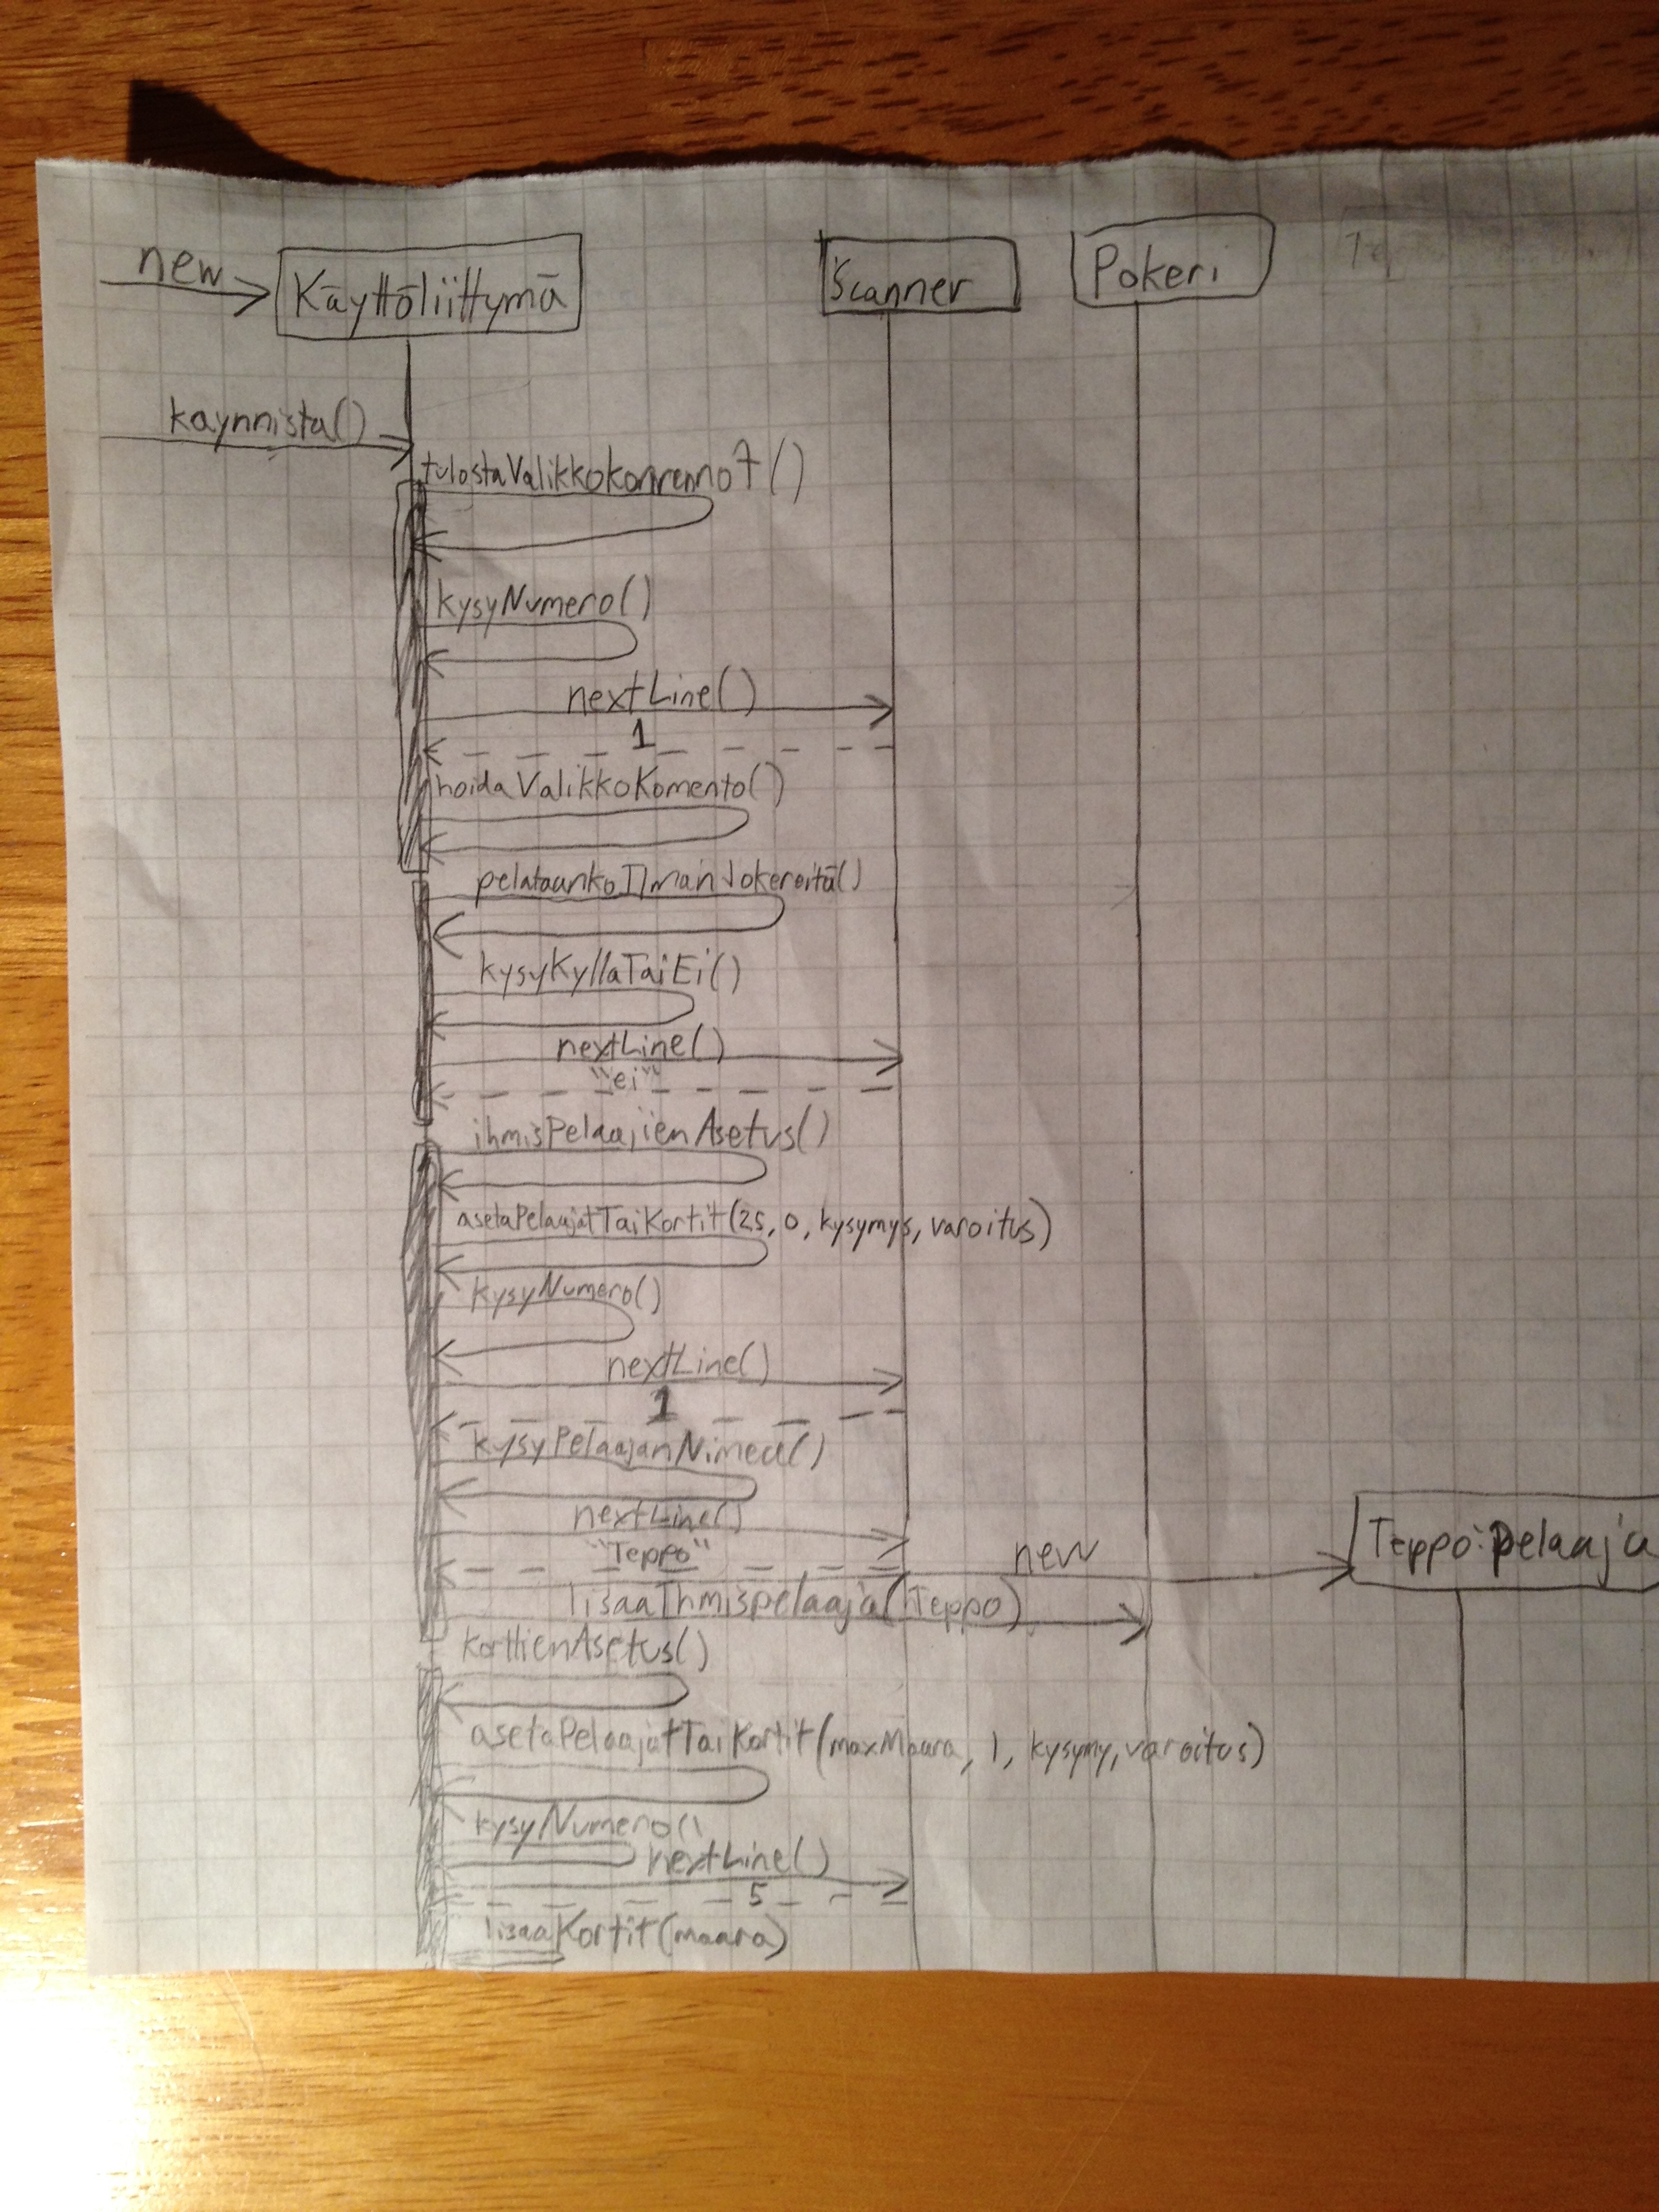 new
Käyttöliittymä
Scanner
Pokeri
kaynnista()
tulostaValikkokomennot()
kysyNumero()
nextLine()
1
hoidaValikkoKomento()
pelataankoIlmanJokereitä()
kysyKyllaTaiEi()
nextLine()
"ei"
ihmisPelaajienAsetus()
asetaPelaajatTaiKortit(25, 0, kysymys, varoitus)
kysyNumero()
nextLine()
1
kysyPelaajanNimea()
nextLine()
"Teppo"
new
Teppo:pelaaja
lisaaIhmispelaaja(Teppo)
korttienAsetus()
asetaPelaajatTaiKortit(maxMaara, 1, kysymy, varoitus)
kysyNumero()
nextLine()
5
lisaaKortit(maara)